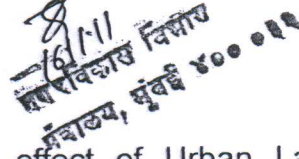 16/1/11
नगरविकास विभाग
मंत्रालय, मुंबई ४०००
effect of Urban La